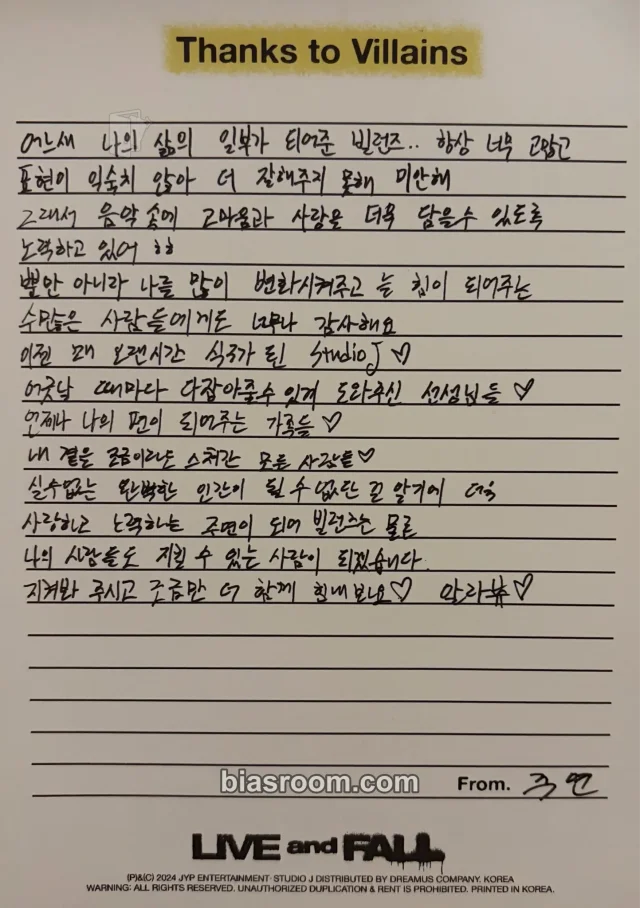 Thanks to Villains
어느새 나의 삶의 일부가 되어준 빌런즈.. 항상 너무 고맙고
표현이 익숙치 않아 더 잘해주지 못해 미안해
그래서 음악 속에 고마움과 사랑을 더욱 담을수 있도록
노력하고 있어 ㅎㅎ
뿐만 아니라 나를 많이 변화시켜주고 늘 힘이 되어주는
수많은 사람들에게도 너무나 감사해요
이젠 꽤 오랜시간 식구가 된 Studio J ♡
어긋날 때마다 다잡아줄수 있게 도와주신 선생님들 ♡
언제나 나의 편이 되어주는 가족들 ♡
내 곁을 조금이라도 스쳐간 모든 사람들 ♡
실수없는 완벽한 인간이 될 수 없단 걸 알기에 더욱
사랑하고 노력하는 주연이 되어 빌런즈는 물론
나의 사람들도 지킬 수 있는 사람이 되겠습니다.
지켜봐 주시고 조금만 더 함께 힘내보아요♡ 알라뷰♡
biasroom.com
From. 주연
LIVE and FALL
(P)&(C) 2024 JYP ENTERTAINMENT· STUDIO J DISTRIBUTED BY DREAMUS COMPANY. KOREA
WARNING: ALL RIGHTS RESERVED. UNAUTHORIZED DUPLICATION & RENT IS PROHIBITED. PRINTED IN KOREA.